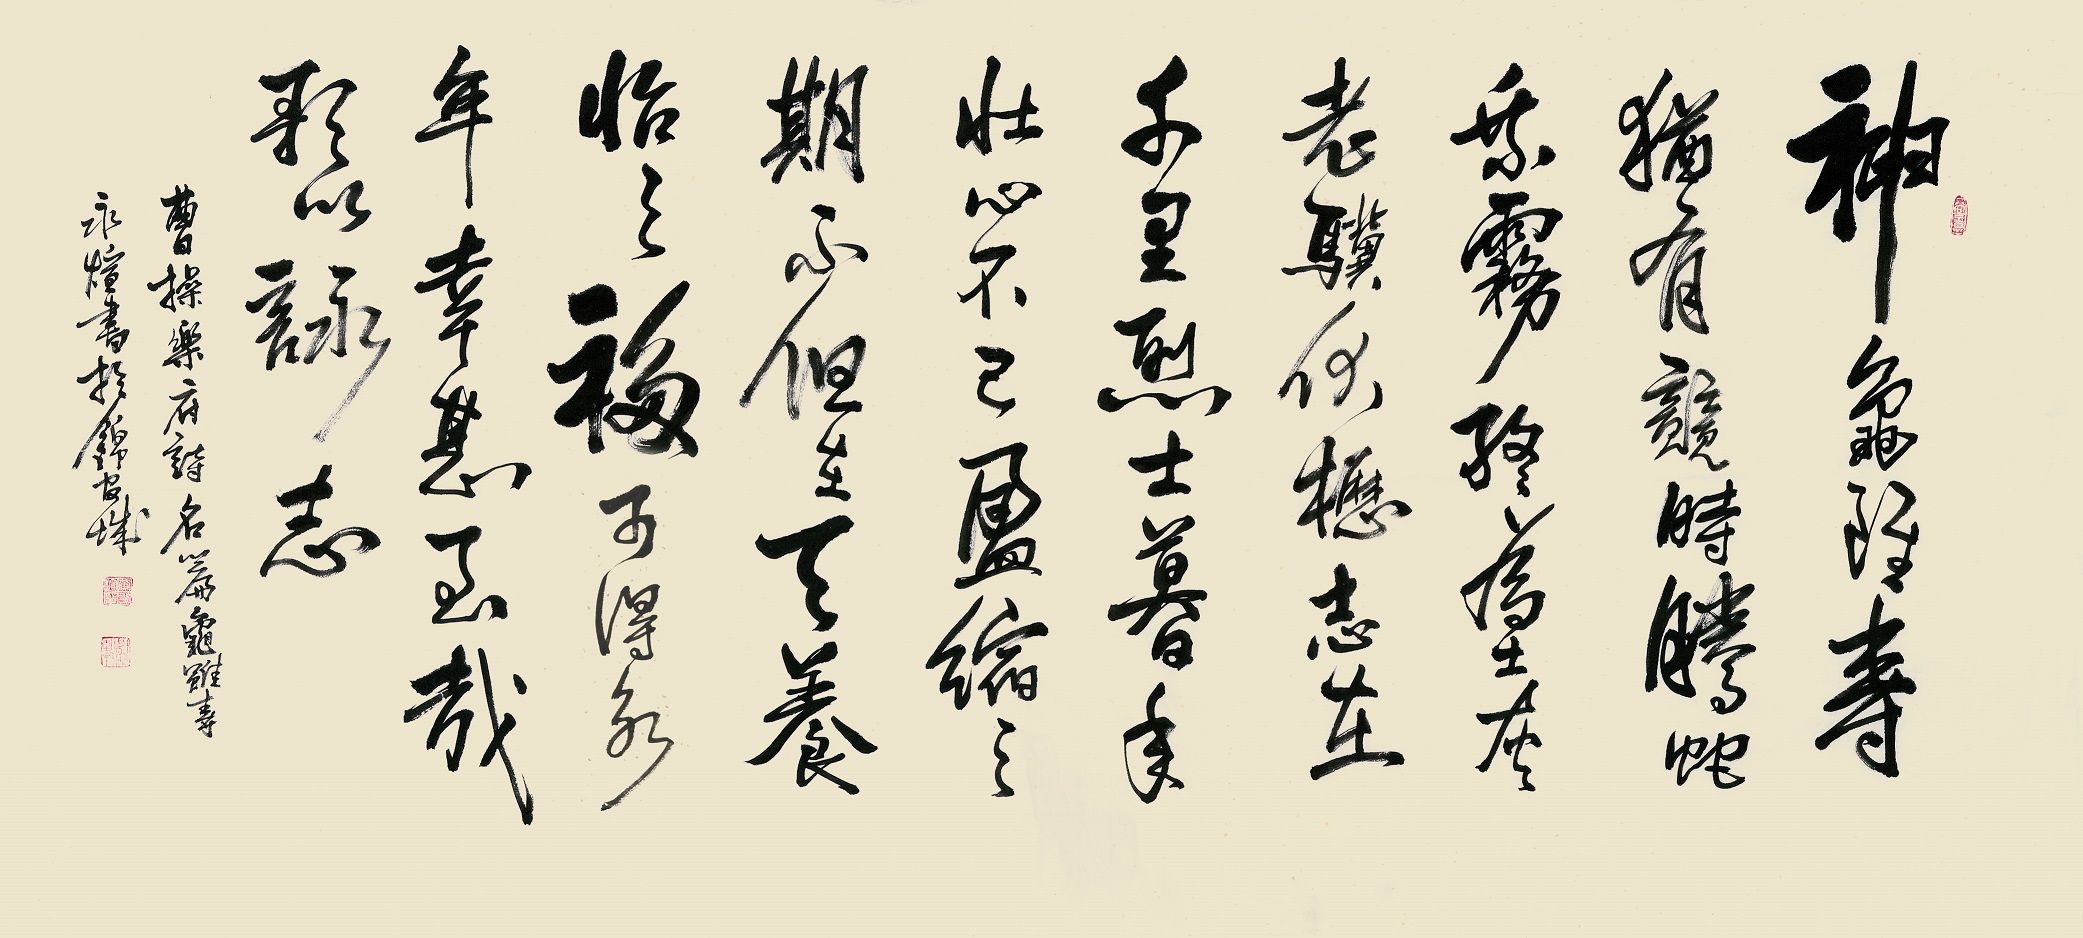 神龜雖壽
猶有競時騰蛇
乘霧終為土灰
老驥伏櫪志在
千里烈士暮年
壯心不已盈縮之
期不但在天養
怡之福可得永
年幸甚至哉
歌以詠志
曹操樂府詩名篇龜雖壽
永煊書於錦官城